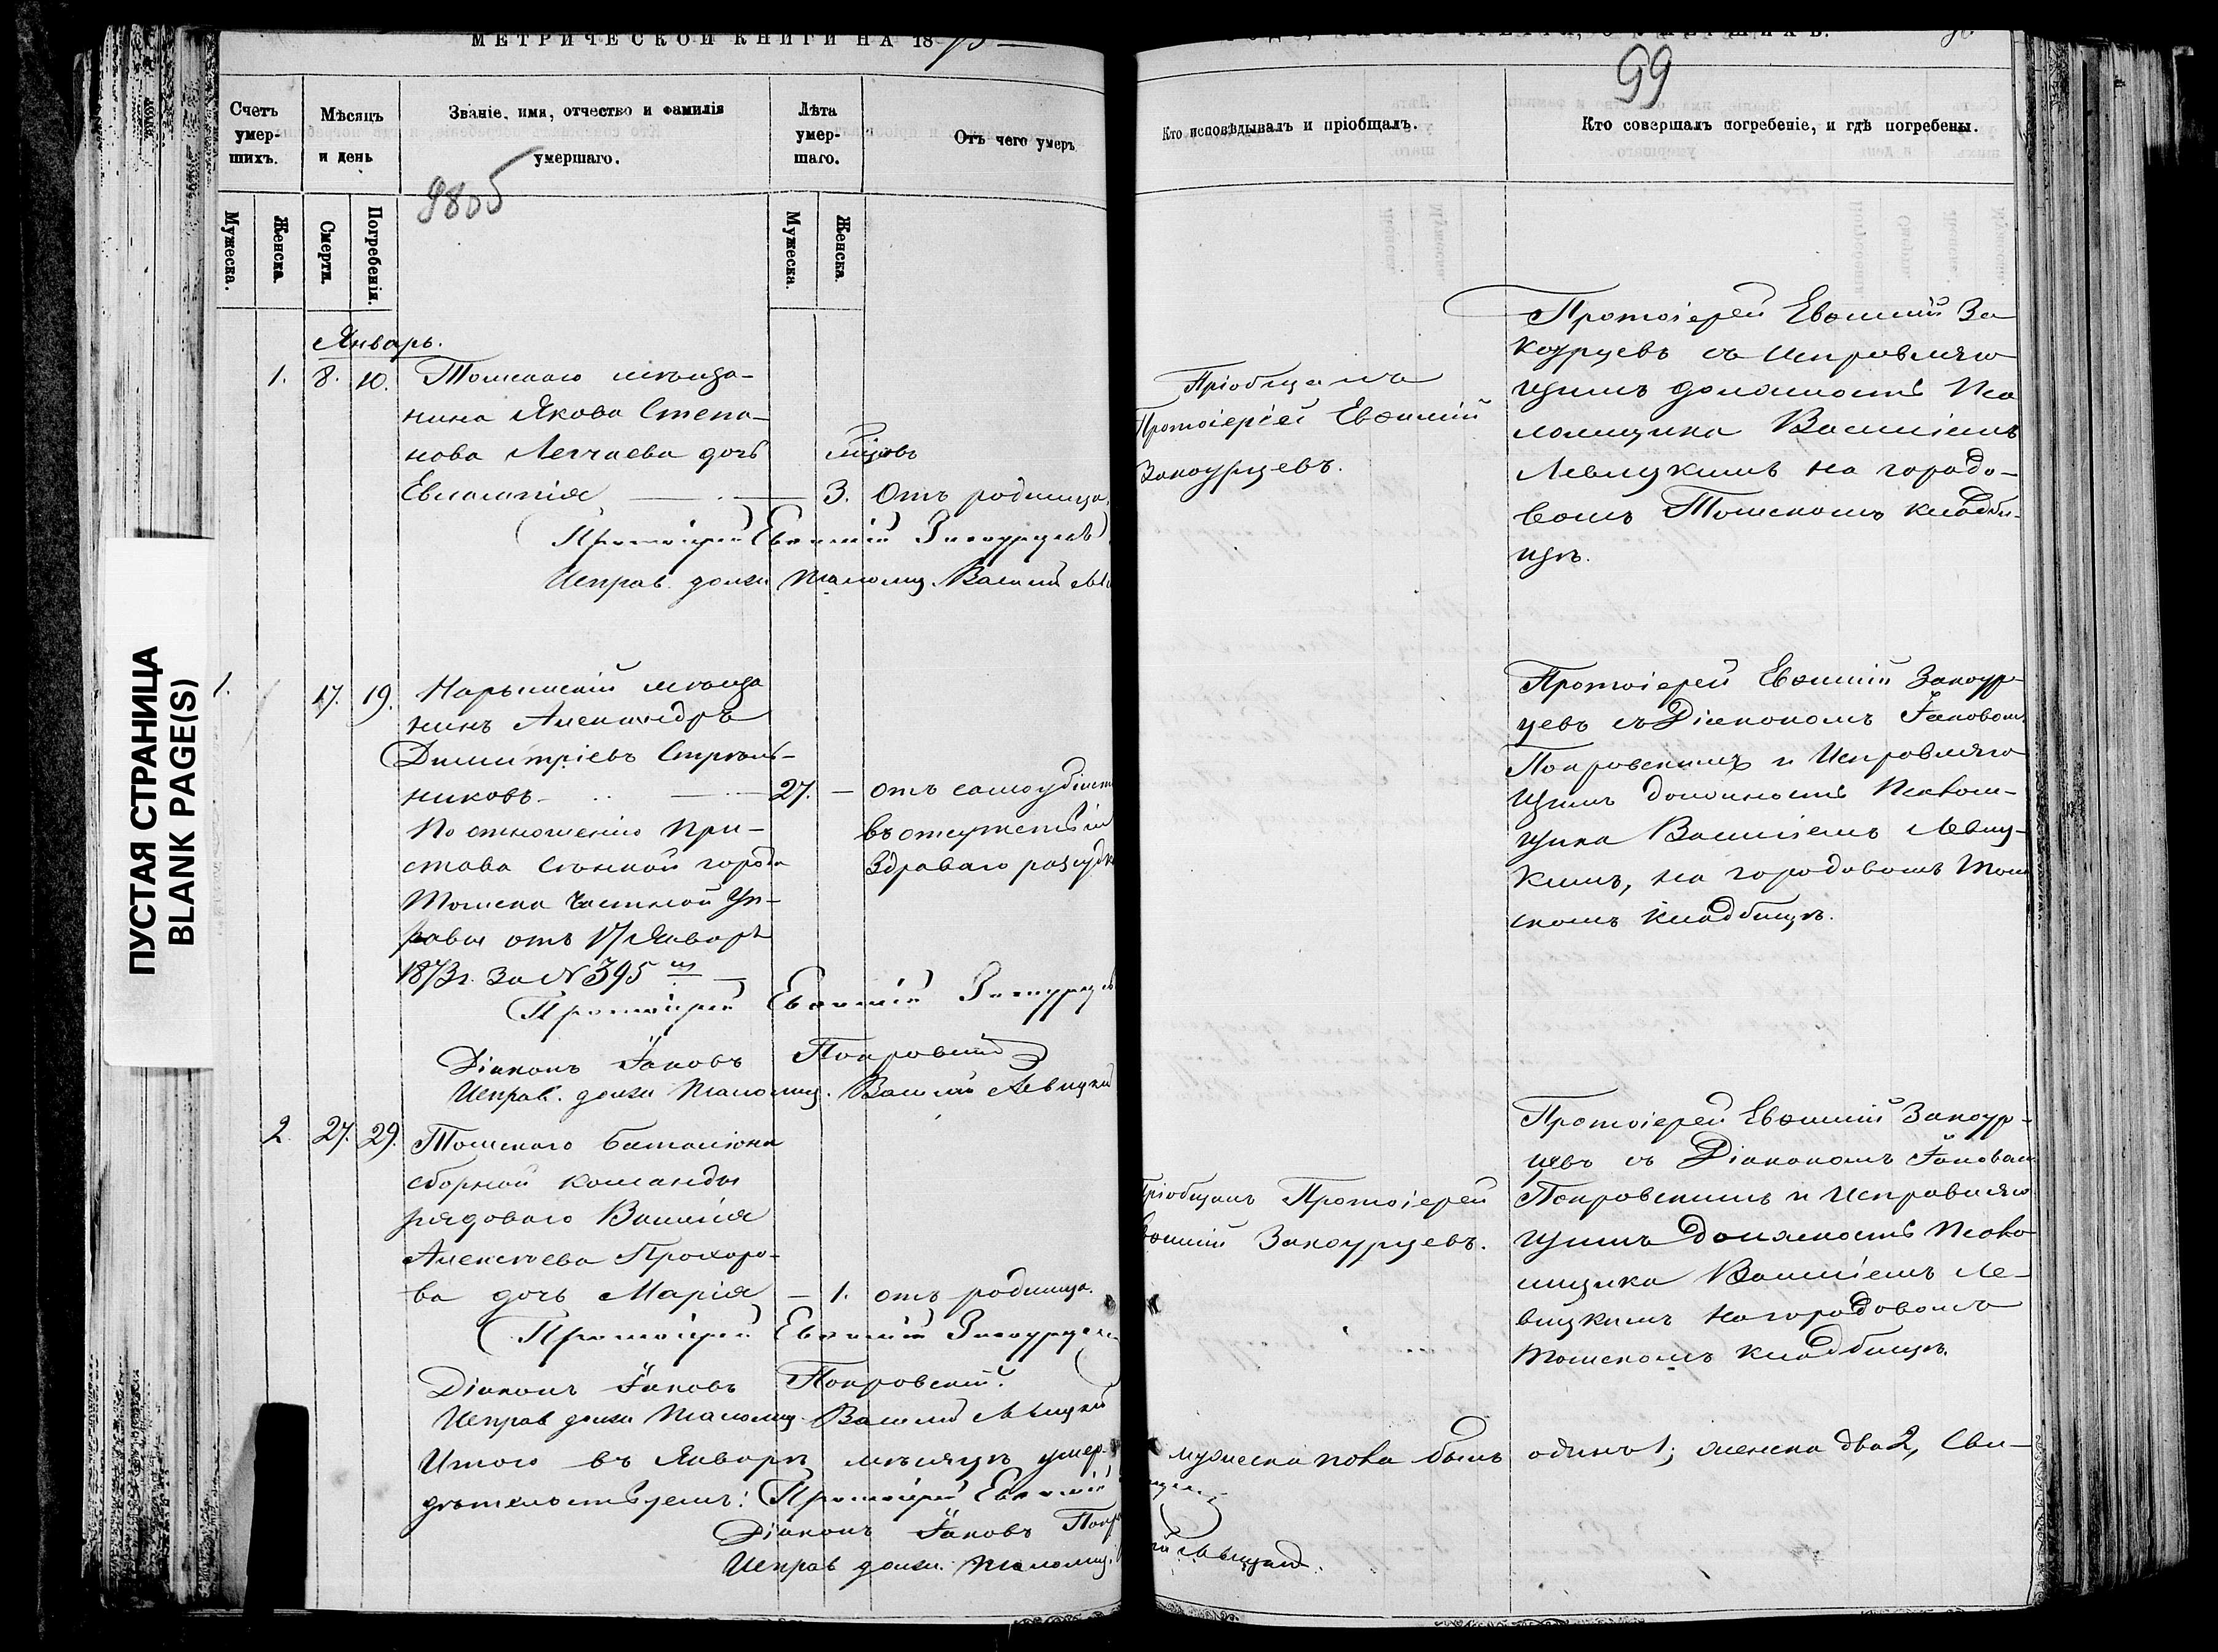 МЕТРИЧЕСКОЙ КНИГИ НА 1873
99
Счетъ умер-шихъ.
Мѣсяцъ и день
Званіе, имя, отчество и фамилія умершаго.
Лѣта умер-шаго.
Отъ чего умеръ
Кто исповѣдывалъ и пріобщалъ.
Кто совершалъ погребеніе, и гдѣ погребены.
9805
Мужеска.
Женска.
Смерти.
Погребенія.
Мужеска.
Женска.
Январь.
1. 8. 10. Томскаго мѣща-
нина Якова Степа-
нова дочь
Евлампія 3. Отъ родимца.
Протоіерей Евѳимій Закоурцевъ
Исправ. долж. Псаломщ. Василій
Пріобщалъ
Протоіерей Евѳимій
Закоурцевъ.
Протоіерей Евѳимій За
коурцевъ съ Исправляю
щимъ должность Пса
ломщика Василіемъ
Левицкимъ на городо-
вомъ Томскомъ кладби-
щѣ.
1. 17. 19. Нарымскій мѣща
нинъ Александръ
Димитріевъ Стрѣль-
никовъ 27. — отъ самоубійст
По отношенію При-
въ отсутствіи
става Сѣнной города
Здраваго разсудк
Томска Частной Уп-
равы отъ 17 Января
1873 г. За № 395
Протоіерей Евѳимій Закоурцевъ
Діаконъ Іаковъ Покровскій
Исправ. долж. Псаломщ. Василій Левицкій
Протоіерей Евѳимій Закоур-
цевъ съ Діакономъ Іаковомъ
Покровскимъ и Исправляю
щимъ должность Псалом-
щика Василіемъ Левиц-
кимъ, на городовомъ Том
скомъ кладбищѣ.
2. 27. 29. Томскаго баталіона
сборной команды
рядоваго Василія
Алексѣева Прохоро-
ва дочь Марія — 1. отъ родимца.
Протоіерей Евѳимій Закоурцевъ
Діаконъ Іаковъ Покровскій.
Исправ. долж. Псаломщ. Василій Левицкій
Пріобщалъ Протоіерей
Евѳимій Закоурцевъ.
Протоіерей Евѳимій Закоур-
цевъ съ Діакономъ Іаковомъ
Покровскимъ и Исправляю
щимъ должность Псало
мщика Василіемъ Ле-
вицкимъ на городовомъ
Томскомъ кладбищѣ.
Итого въ Январѣ мѣсяцѣ умер. мужеска пола былъ одинъ 1; женска два 2, Сви-
дѣтельствуемъ: Протоіерей Евѳимій
Діаконъ Іаковъ Покр
Исправ. долж. Псаломщ. Левицкій.
ПУСТАЯ СТРАНИЦА
BLANK PAGE(S)